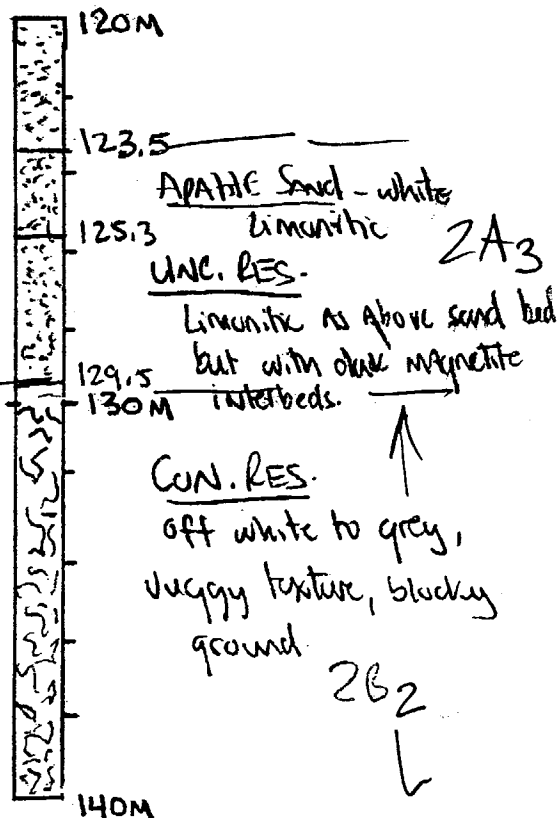 120M
123.5
APATITE Sand - white
Limonitic
2A3
125.3
UNC. RES.
Limonitic as Above sand bed
but with dark magnetite
interbeds.
129.5
130M
CON. RES.
off white to grey,
vuggy texture, blocky
ground.
2B2
140M